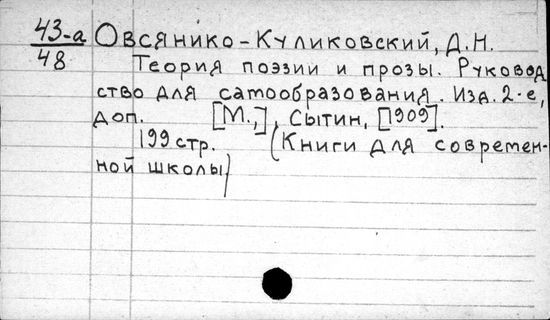 43-а Овсянико-Куликовский, Д.Н.
48
Теория поэзии и прозы. Руковод
ство для самообразования. Изд. 2-е,
доп. [М.,], Сытин, [1909].
199 стр. (Книги для современ-
ной школы)